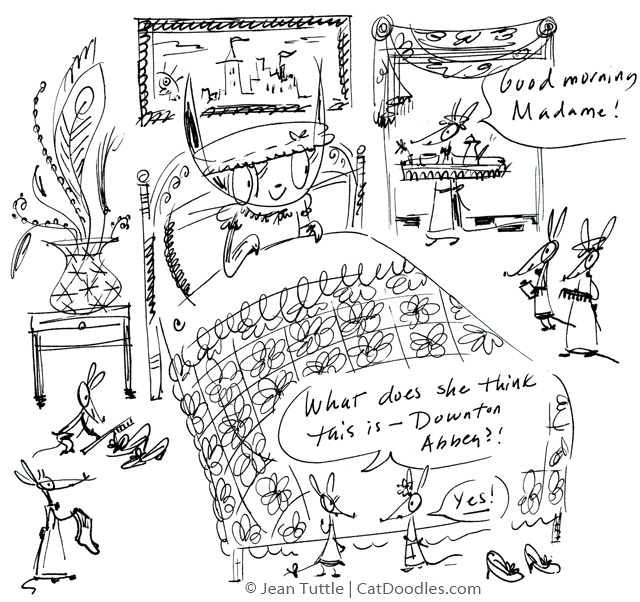 Good morning
Madame!
What does she think
this is – Downton
Abbey?!
Yes!
© Jean Tuttle | CatDoodles.com